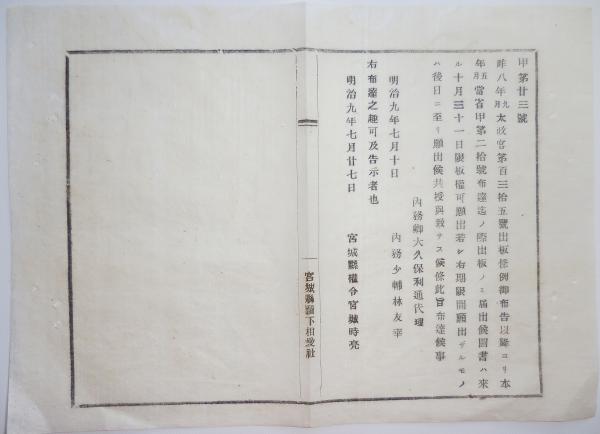 甲第廿三號
昨八年九月太政官第百三拾五號出板條例御布告以降ヨリ本
年五月當省甲第二拾號布達迄ノ際出板ノミ屆出候圖書ハ來
ル十月三十一日限板權可願出若シ右期限間願出デルモノ
ハ後日ニ至リ願出候共授與致サス候條此旨布達候事
内務卿大久保利通代理
明治九年七月十日 内務少輔林友幸
右布達之趣可及告示者也
明治九年七月廿七日 宮城縣權令宮城時亮
宮城縣廳下相愛社